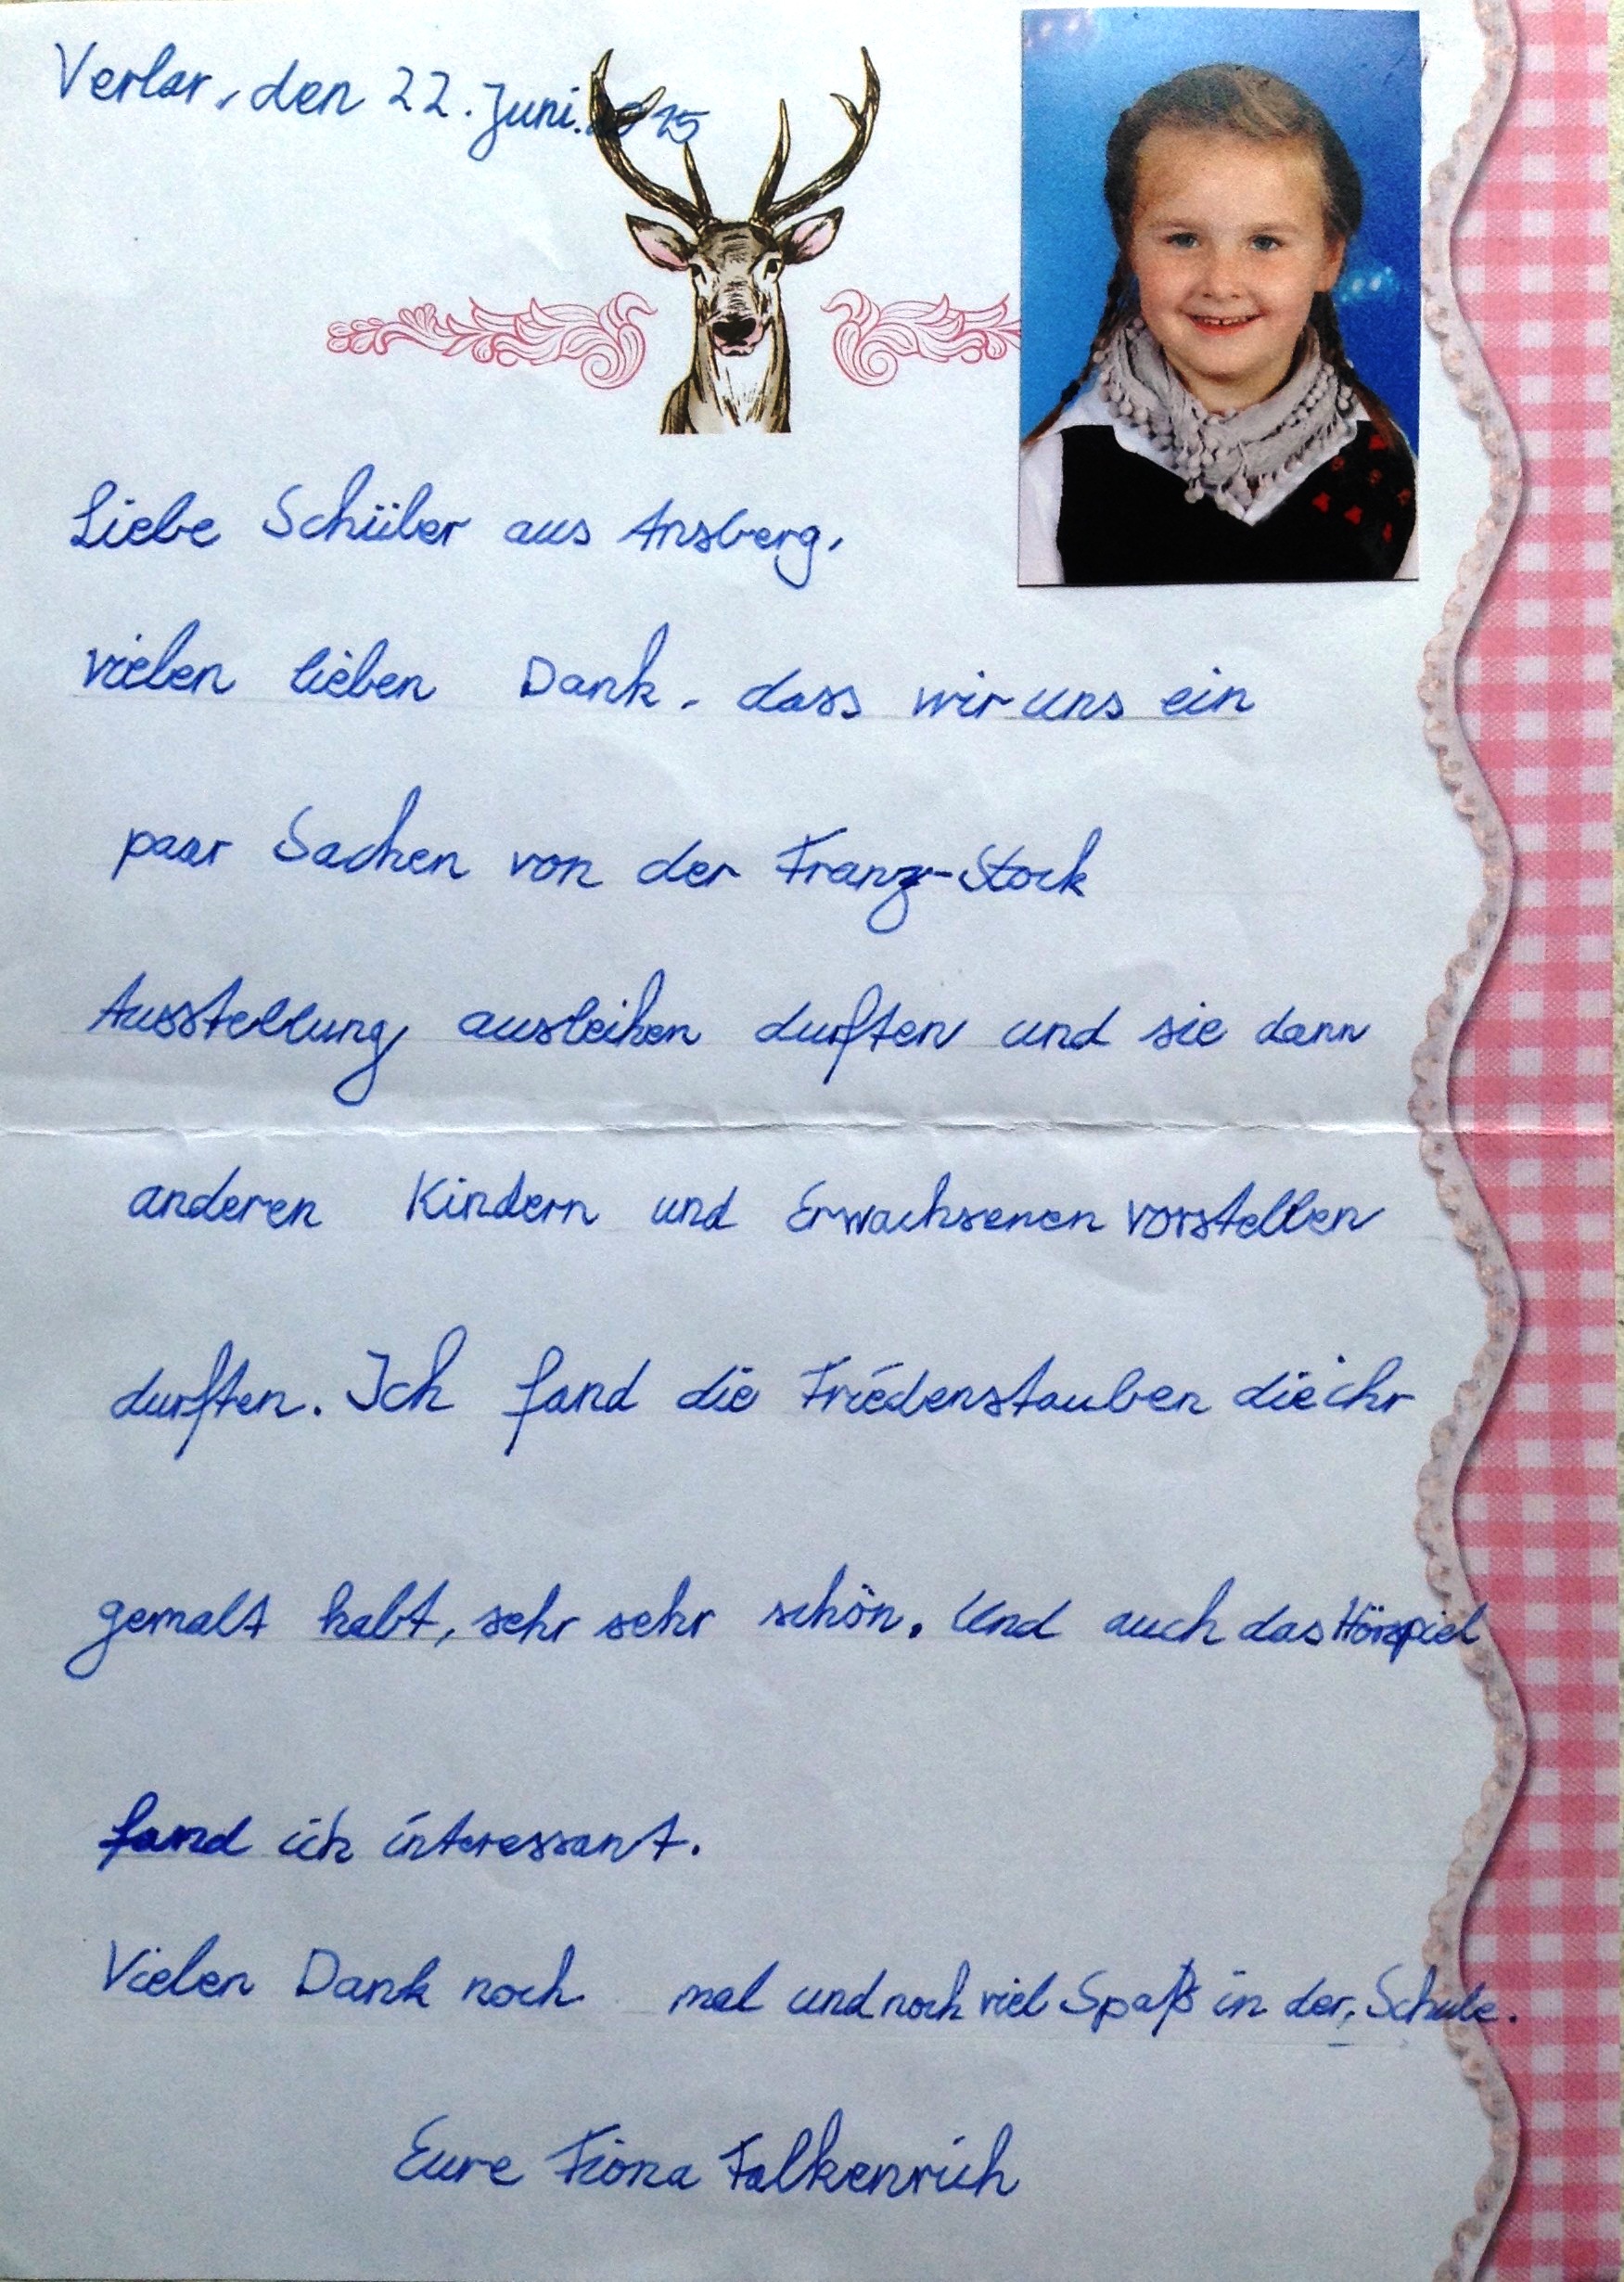 Verlar, den 22. Juni. 2015
Liebe Schüler aus Ansberg,
vielen lieben Dank, dass wir uns ein
paar Sachen von der Franz-Stock
Ausstellung ausleihen durften und sie dann
anderen Kindern und Erwachsenen vorstellen
durften. Ich fand die Friedenstauben die ihr
gemalt habt, sehr sehr schön. Und auch das Hörspiel
fand ich interessant.
Vielen Dank noch mal und noch viel Spaß in der Schule.
Eure Fiona Falkenrich